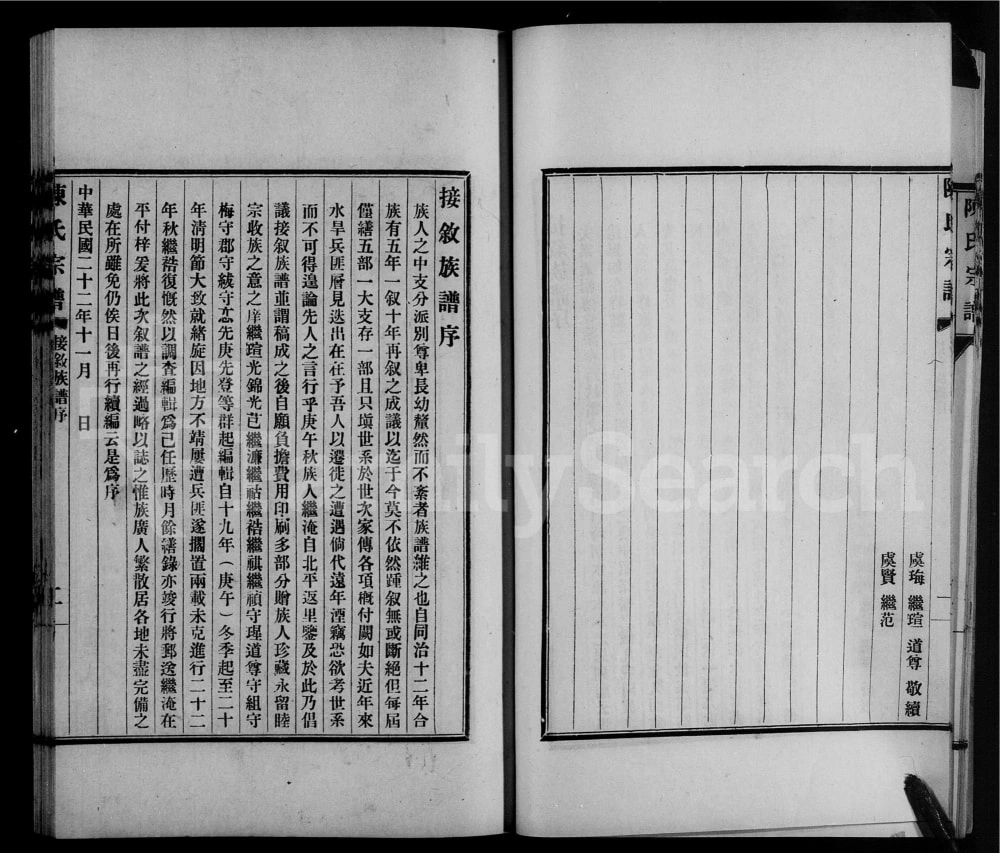 陳氏宗譜
陳氏宗譜
虞瑜 繼瑄 道尊 敬續
虞賢 繼范
接敘族譜序
族人之中支分派別尊卑長幼釐然而不紊者族譜維之也自同治十二年合
族有五年一叙十年再叙之成議以迄于今莫不依然踵叙無或斷絕但每屆
僅繕五部一大支存一部且只塡世系於世次家傳各項槪付闕如夫近年來
水旱兵匪層見迭出在在予吾人以遷徙之遭遇倘代遠年湮竊恐欲考世系
而不可得遑論先人之言行乎庚午秋族人繼淹自北平返里鑒及於此乃倡
議接叙族譜並謂稿成之後自願負擔費用印刷多部分贈族人珍藏永留睦
宗收族之意之庠繼瑄光錦光芑繼濂繼祜繼祮繼祺繼禎守瑆道尊守組守
梅守郡守紱守 先庚先登等群起編輯自十九年（庚午）冬季起至二十
年淸明節大致就緒旋因地方不靖屢遭兵匪遂擱置兩載未克進行二十二
年秋繼祮復慨然以調查編輯爲己任歷時月餘繕錄亦竣行將郵送繼淹在
平付梓爰將此次叙譜之經過略以誌之惟族廣人繁散居各地未盡完備之
處在所難免仍俟日後再行續編云是爲序
中華民國二十二年十一月 日
陳氏宗譜 接敘族譜序 二
FamilySearch